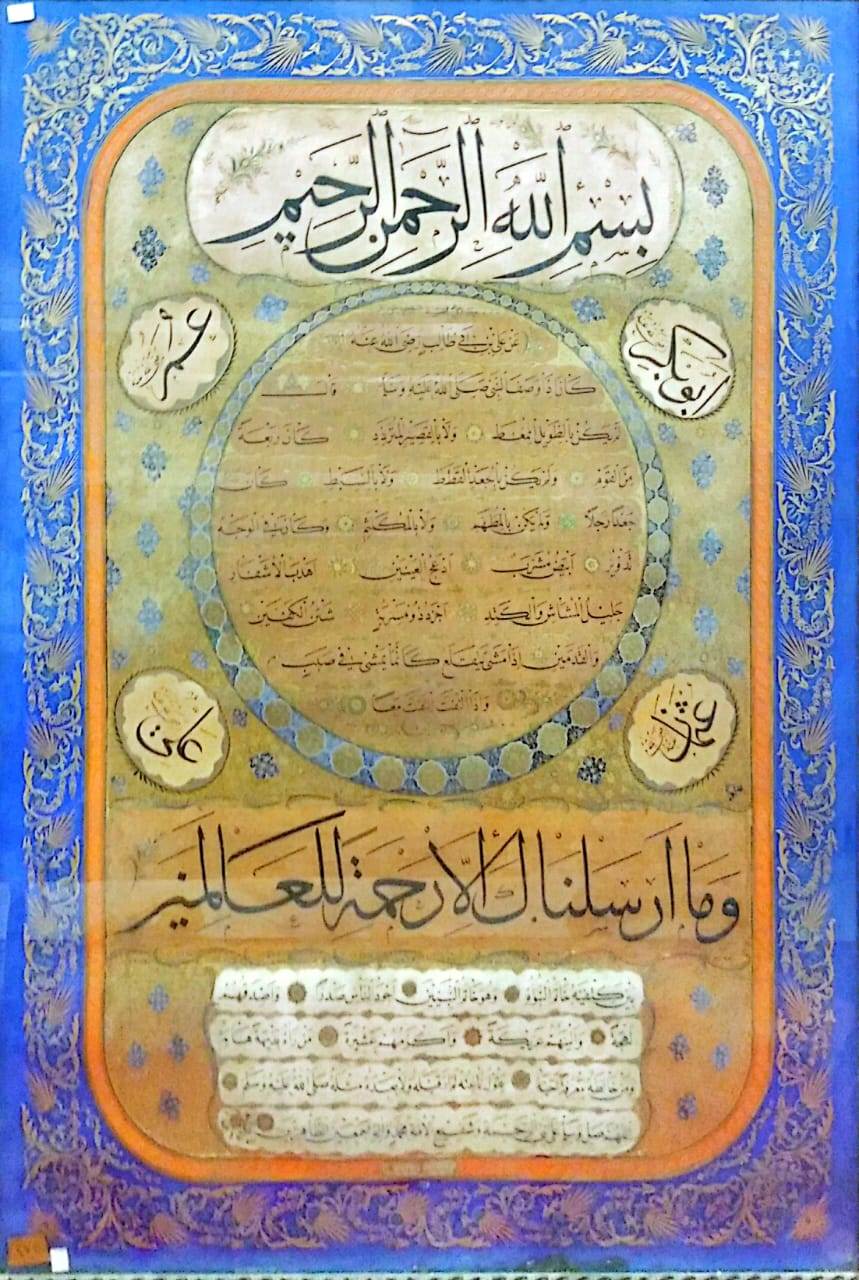 بِسْمِ اللهِ الرَّحْمٰنِ الرَّحِيمِ
ابوبكر
عمر
عَنْ عَلِيِّ بْنِ أَبِي طَالِبٍ رَضِيَ اللهُ عَنْهُ
كَانَ إِذَا وَصَفَ النَّبِيَّ صَلَّى اللهُ عَلَيْهِ وَسَلَّمَ قَالَ
لَمْ يَكُنْ بِالطَّوِيلِ الْمُمَغَّطِ وَلَا بِالْقَصِيرِ الْمُتَرَدِّدِ كَانَ رَبْعَةً
مِنَ الْقَوْمِ وَلَمْ يَكُنْ بِالْجَعْدِ الْقَطَطِ وَلَا بِالسَّبْطِ كَانَ
جَعْدًا رَجِلًا وَلَمْ يَكُنْ بِالْمُطَهَّمِ وَلَا بِالْمُكَلْثَمِ وَكَانَ فِي الْوَجْهِ
تَدْوِيرٌ أَبْيَضُ مُشْرَبٌ أَدْعَجُ الْعَيْنَيْنِ أَهْدَبُ الْأَشْفَارِ
جَلِيلُ الْمُشَاشِ وَالْكَتَدِ أَجْرَدُ ذُو مَسْرُبَةٍ شَثْنُ الْكَفَّيْنِ
وَالْقَدَمَيْنِ إِذَا مَشَى يَتَقَلَّعُ كَأَنَّمَا يَمْشِي فِي صَبَبٍ
وَإِذَا الْتَفَتَ الْتَفَتَ مَعًا
عثمان
علي
وَمَا أَرْسَلْنَاكَ إِلَّا رَحْمَةً لِلْعَالَمِينَ
بَيْنَ كَتِفَيْهِ خَاتَمُ النُّبُوَّةِ وَهُوَ خَاتَمُ النَّبِيِّينَ أَجْوَدُ النَّاسِ صَدْرًا وَأَصْدَقُهُمْ
لَهْجَةً وَأَلْيَنُهُمْ عَرِيكَةً وَأَكْرَمُهُمْ عَشِيرَةً مَنْ رَآهُ بَدِيهَةً هَابَهُ
وَمَنْ خَالَطَهُ مَعْرِفَةً أَحَبَّهُ يَقُولُ نَاعِتُهُ لَمْ أَرَ قَبْلَهُ وَلَا بَعْدَهُ مِثْلَهُ صَلَّى اللهُ عَلَيْهِ وَسَلَّمَ
اللهم صل وسلم على نبي الرحمة وشفيع الامة محمد واله اجمعين الطاهرين